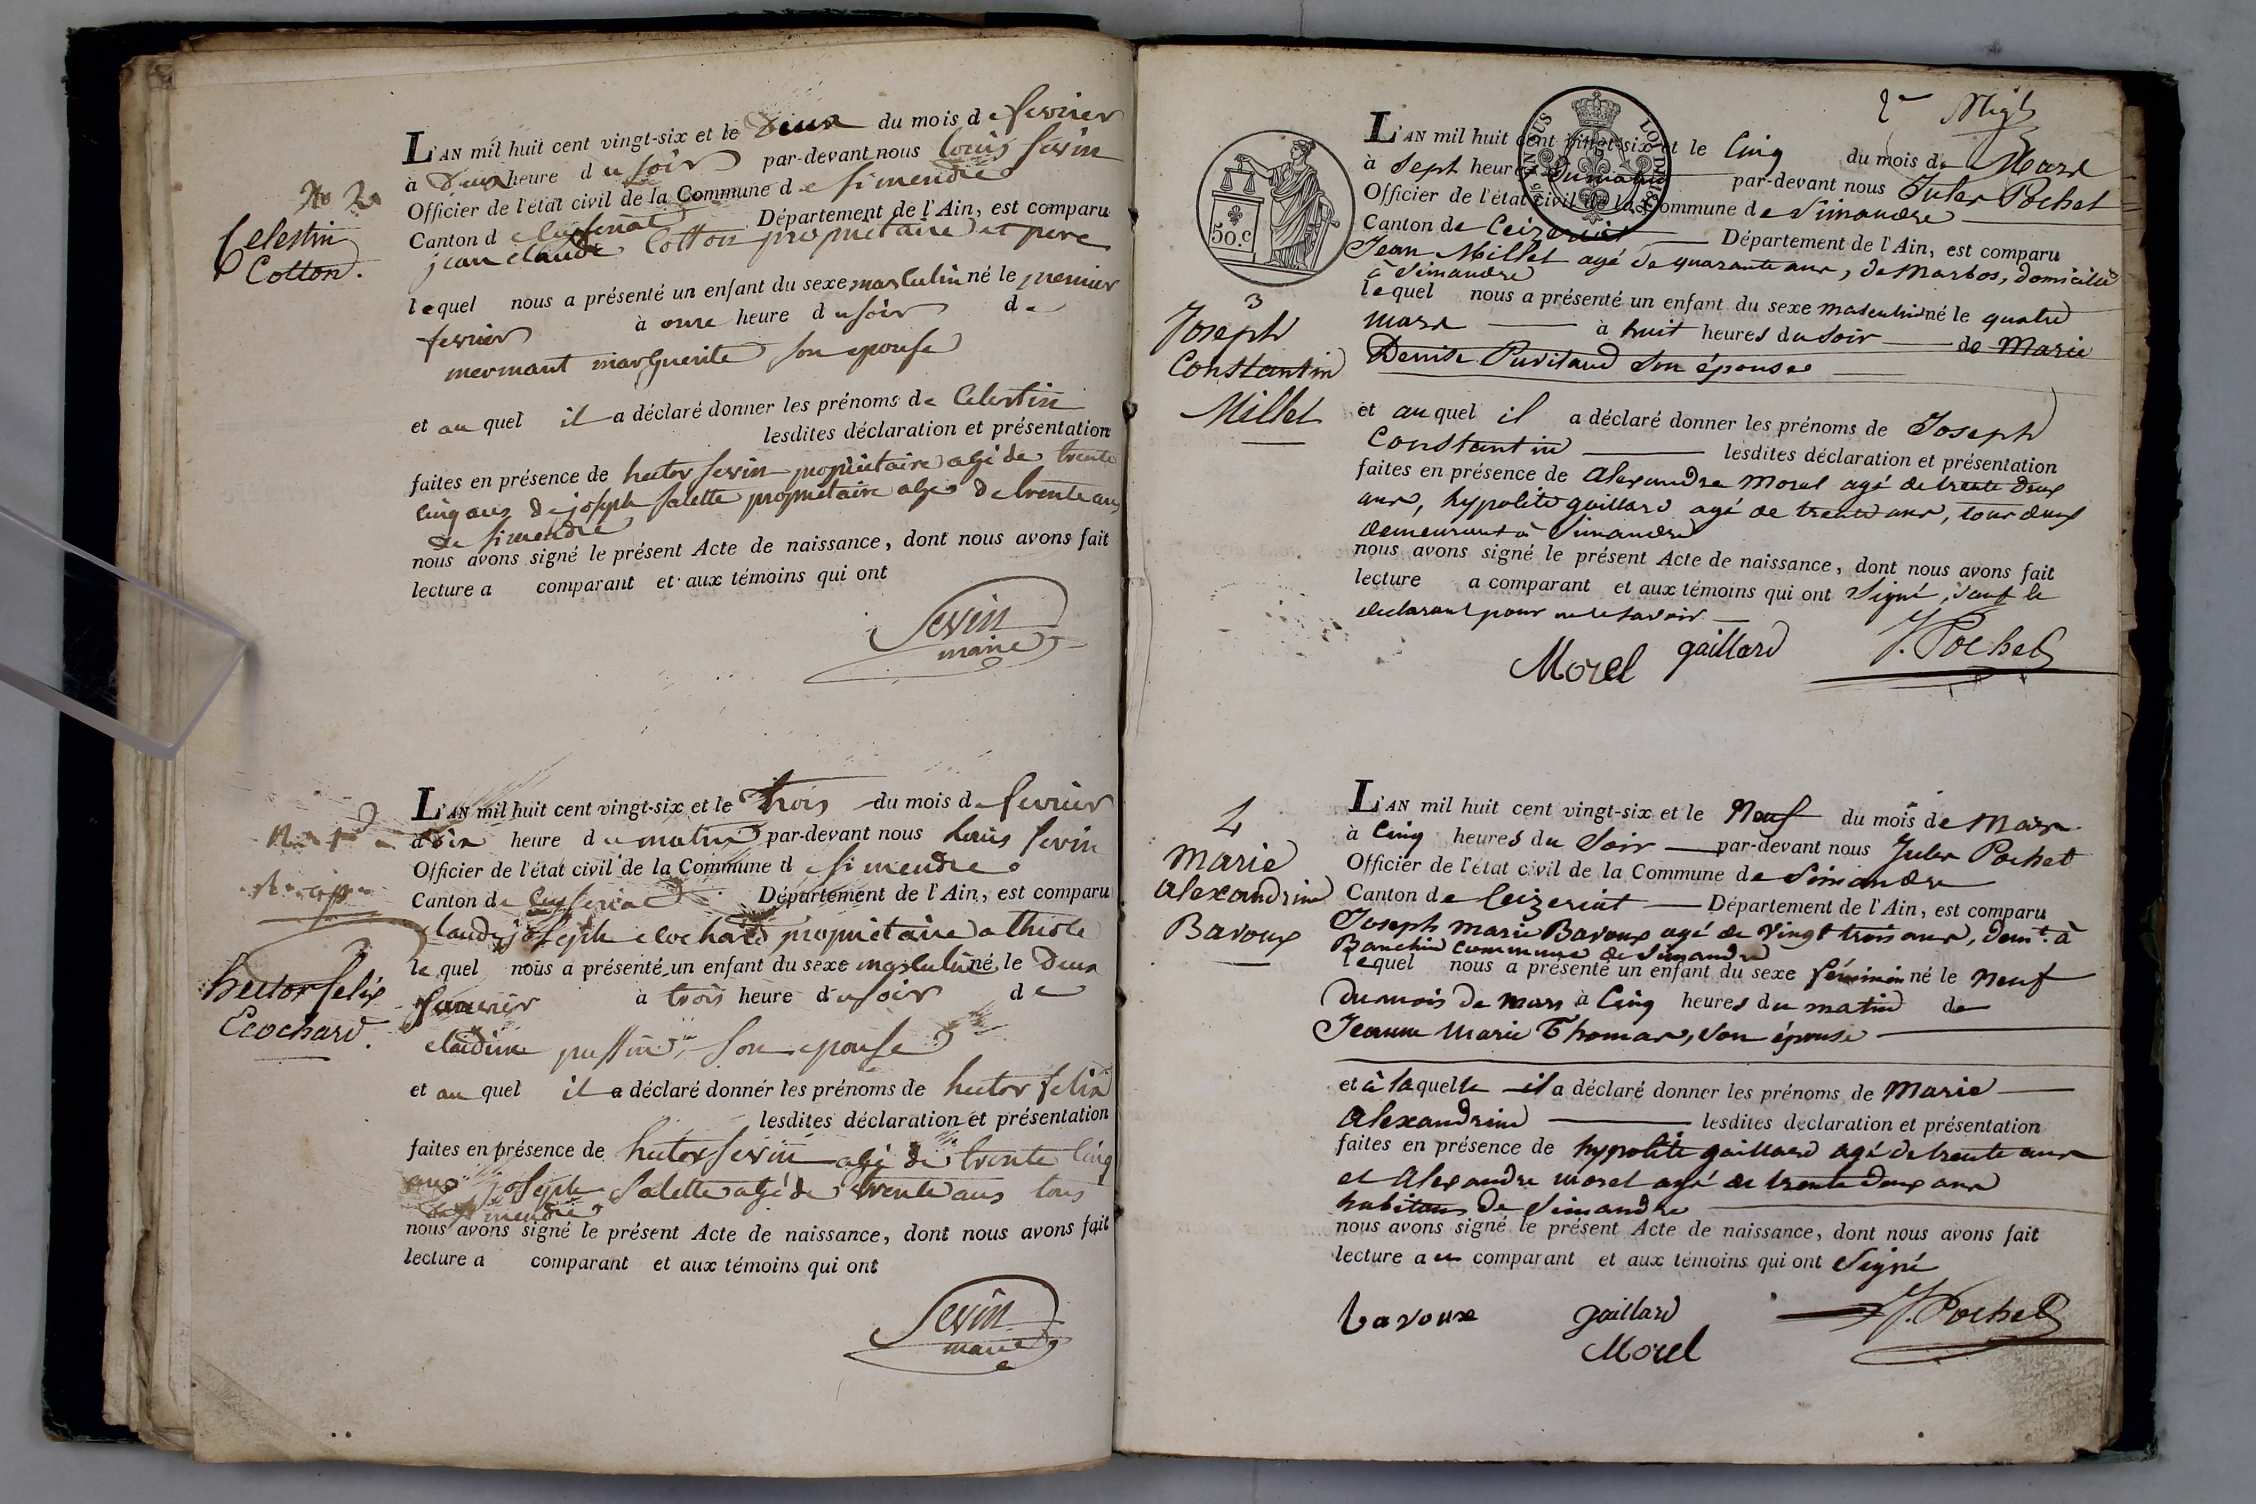 No 2
Celestin
Cotton.
L'AN mil huit cent vingt-six et le Deux du mois de fevrier
à Deux heure du soir par-devant nous louis sevin
Officier de l'état civil de la Commune de simendre
Canton de Département de l'Ain, est comparu
jean claude Cotton propriétaire et pere
lequel nous a présenté un enfant du sexe masculin né le premier
fevrier à onze heure du soir de
mermant marguerite son epouse
et au quel il a déclaré donner les prénoms de Celestin
lesdites déclaration et présentation
faites en présence de hector sevin propriétaire agé de trente
cinq ans de joseph salette propriétaire agé de trente ans
de simendre
nous avons signé le présent Acte de naissance, dont nous avons fait
lecture a comparant et aux témoins qui ont
Sevin
maire
hector felix
Ecochard.
L'AN mil huit cent vingt-six et le trois du mois de fevrier
à dix heure du matin par-devant nous louis sevin
Officier de l'état civil de la Commune de simendre
Canton de Département de l'Ain, est comparu
claude joseph ecochard propriétaire a thiole
le quel nous a présenté un enfant du sexe masculin né le Deux
fevrier à trois heure du soir de
claudine son epouse
et au quel il a déclaré donner les prénoms de hector felix
lesdites déclaration et présentation
faites en présence de hector sevin agé de trente cinq
ans joseph Salette agé de trente ans tous
de simendre
nous avons signé le présent Acte de naissance, dont nous avons fait
lecture a comparant et aux témoins qui ont
Sevin
maire
50.c
3
Joseph
Constantin
Millet
L'AN mil huit cent vingt-six et le Cinq du mois de Mars
à Sept heures Du matin par-devant nous Jules Pochet
Officier de l'état civil de la Commune de Simandre
Canton de Ceizeriat Département de l'Ain, est comparu
Jean Millet agé de quarante ans, de Marbos, domicilié
à Simandre
lequel nous a présenté un enfant du sexe masculin né le quatre
mars à huit heures du soir de Marie
Denise Puvilland son épouse
et au quel il a déclaré donner les prénoms de Joseph
Constantin lesdites déclaration et présentation
faites en présence de alexandre morel agé de trente deux
ans, hypolite gaillard agé de trente ans, tous deux
demeurant à Simandre
nous avons signé le présent Acte de naissance, dont nous avons fait
lecture a comparant et aux témoins qui ont Signé, sauf le
declarant pour ne le savoir
Morel gaillard J. Pochet
4
marie
alexandrine
Bavoux
L'AN mil huit cent vingt-six et le Neuf du mois de Mars
à Cinq heures du Soir par-devant nous Jules Pochet
Officier de l'état civil de la Commune de Simandre
Canton de Ceizeriat Département de l'Ain, est comparu
Joseph Marie Bavoux agé de Vingt trois ans, demt. à
Banchin commune de Simandre
lequel nous a présenté un enfant du sexe féminin né le Neuf
du mois de mars à Cinq heures du matin de
Jeanne Marie Thomas, son épouse
et à laquelle il a déclaré donner les prénoms de Marie
alexandrine lesdites déclaration et présentation
faites en présence de hypolite gaillard agé de trente ans
et Alexandre morel agé de trente deux ans
habitans de Simandre
nous avons signé le présent Acte de naissance, dont nous avons fait
lecture au comparant et aux témoins qui ont Signé
bavoux gaillard J. Pochet
Morel